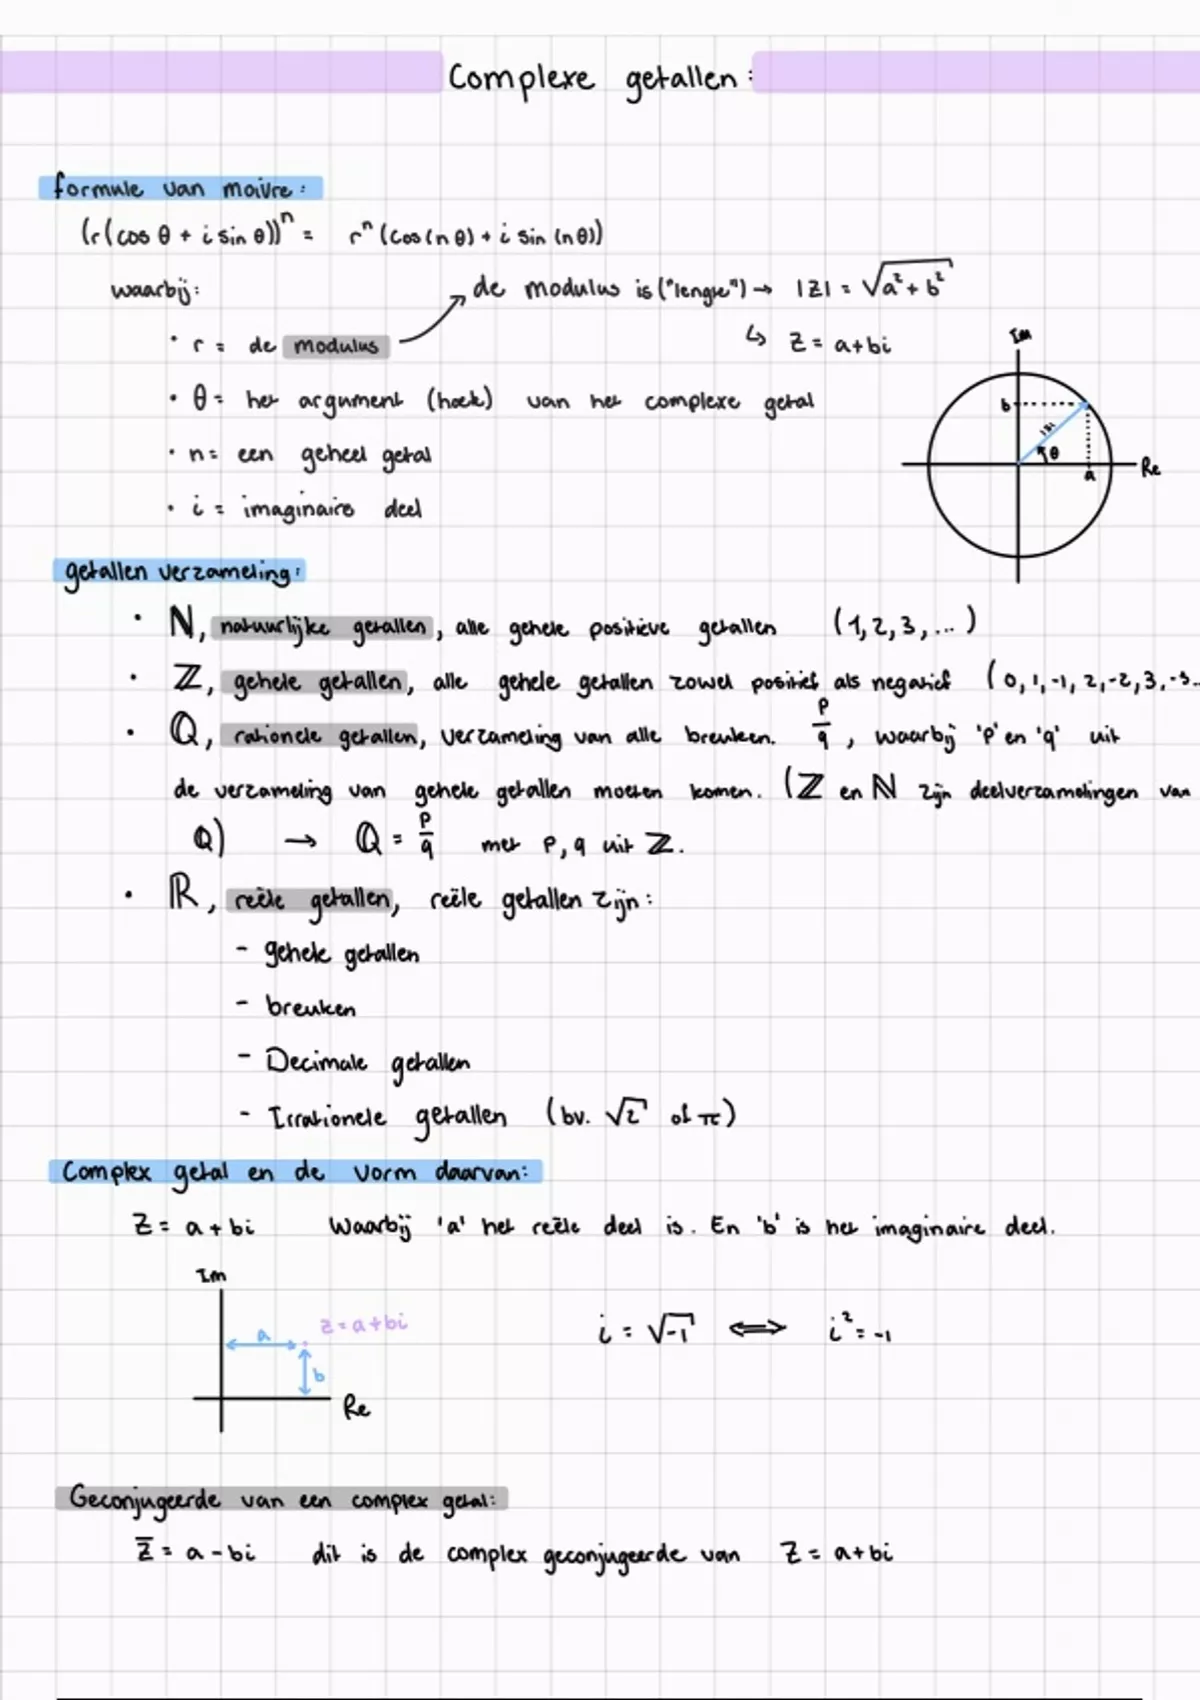 Complexe getallen:
formule van moivre:
(r(cos θ + i sin θ))ⁿ = rⁿ (cos(nθ) + i sin (nθ))
waarbij:
de modulus is ("lengte") → |z| = √a² + b²
• r = de modulus
↳ z = a+bi
• θ = het argument (hoek) van het complexe getal
• n = een geheel getal
• i = imaginaire deel
Im
b
|z|
θ
a
Re
getallen verzameling:
• ℕ, natuurlijke getallen, alle gehele positieve getallen (1,2,3,...)
• ℤ, gehele getallen, alle gehele getallen zowel positief als negatief (0,1,-1,2,-2,3,-3..
• ℚ, rationele getallen, verzameling van alle breuken. p/q, waarbij 'p' en 'q' uit
de verzameling van gehele getallen moeten komen. (ℤ en ℕ zijn deelverzamelingen van
ℚ) → ℚ = p/q met p, q uit ℤ.
• ℝ, reële getallen, reële getallen zijn:
- gehele getallen
- breuken
- Decimale getallen
- Irrationele getallen (bv. √2 of π)
Complex getal en de vorm daarvan:
z = a + bi Waarbij 'a' het reële deel is. En 'b' is het imaginaire deel.
Im
z = a+bi
a
b
Re
i = √-1 ⟺ i² = -1
Geconjugeerde van een complex getal:
z̅ = a - bi dit is de complex geconjugeerde van z = a+bi